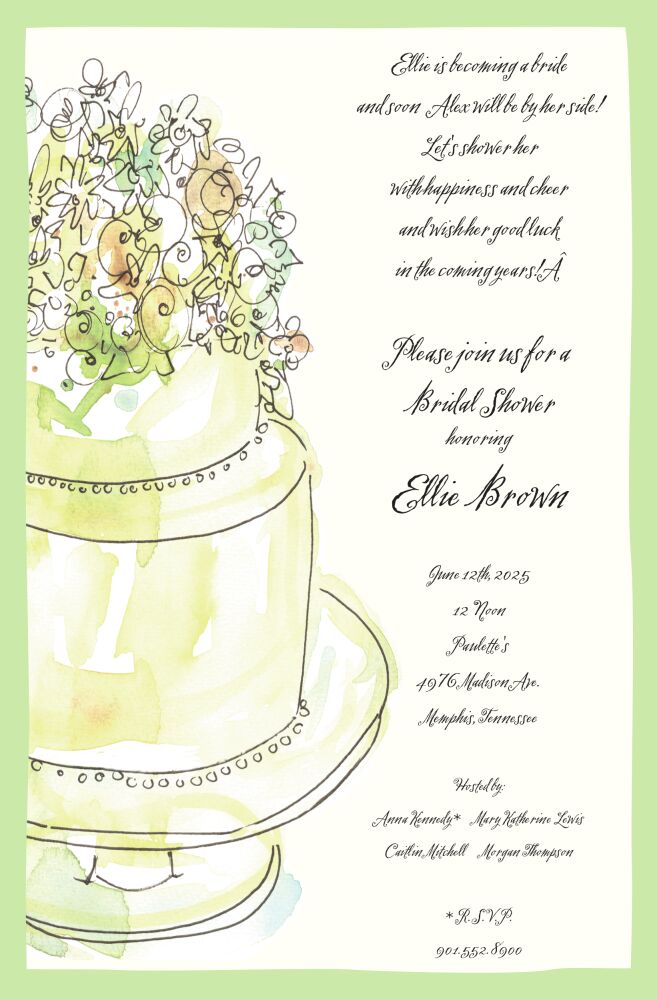 Ellie is becoming a bride
and soon Alex will be by her side!
Let's shower her
with happiness and cheer
and wish her good luck
in the coming years!Â
Please join us for a
Bridal Shower
honoring
Ellie Brown
June 12th, 2025
12 Noon
Paulette's
4976 Madison Ave.
Memphis, Tennessee
Hosted by:
Anna Kennedy* Mary Katherine Lewis
Caitlin Mitchell Morgan Thompson
* R.S.V.P.
901.552.8900